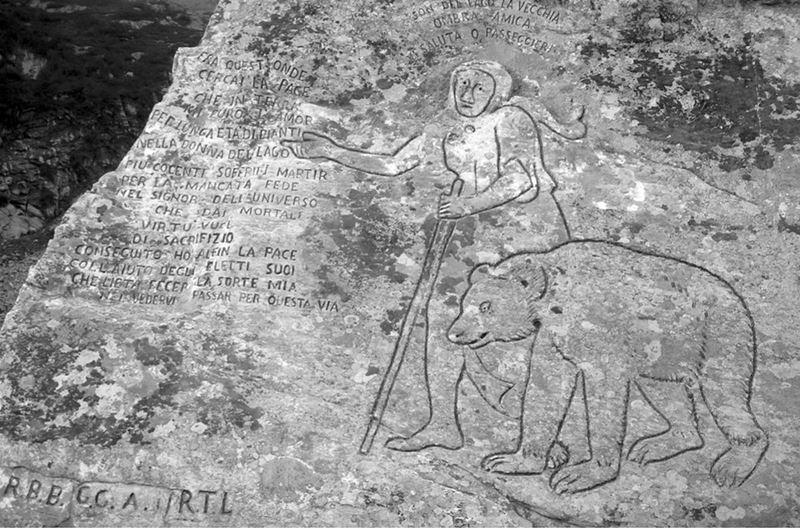 SON DEL LAGO LA VECCHIA
OMBRA AMICA
SALUTA O PASSEGGIERI
FRA QUEST'ONDE
CERCAI LA PACE
CHE IN TERRA
MI FURO I AMOR
PER LUNGA ETA DI PIANTI
NELLA DONNA DEL LAGO VI
PIU COCENTI SOFFRII I MARTIR
PER LA MANCATA FEDE
NEL SIGNOR DELL'UNIVERSO
CHE DAI MORTALI
VIRTU VUOL
DI SACRIFIZIO
CONSEGUITO HO ALFIN LA PACE
COLL'AIUTO DEGLI ELETTI SUOI
CHE LIETA FECER LA SORTE MIA
NEL VEDERVI PASSAR PER QUESTA VIA
R.B.B. C.C. A. R.T.L